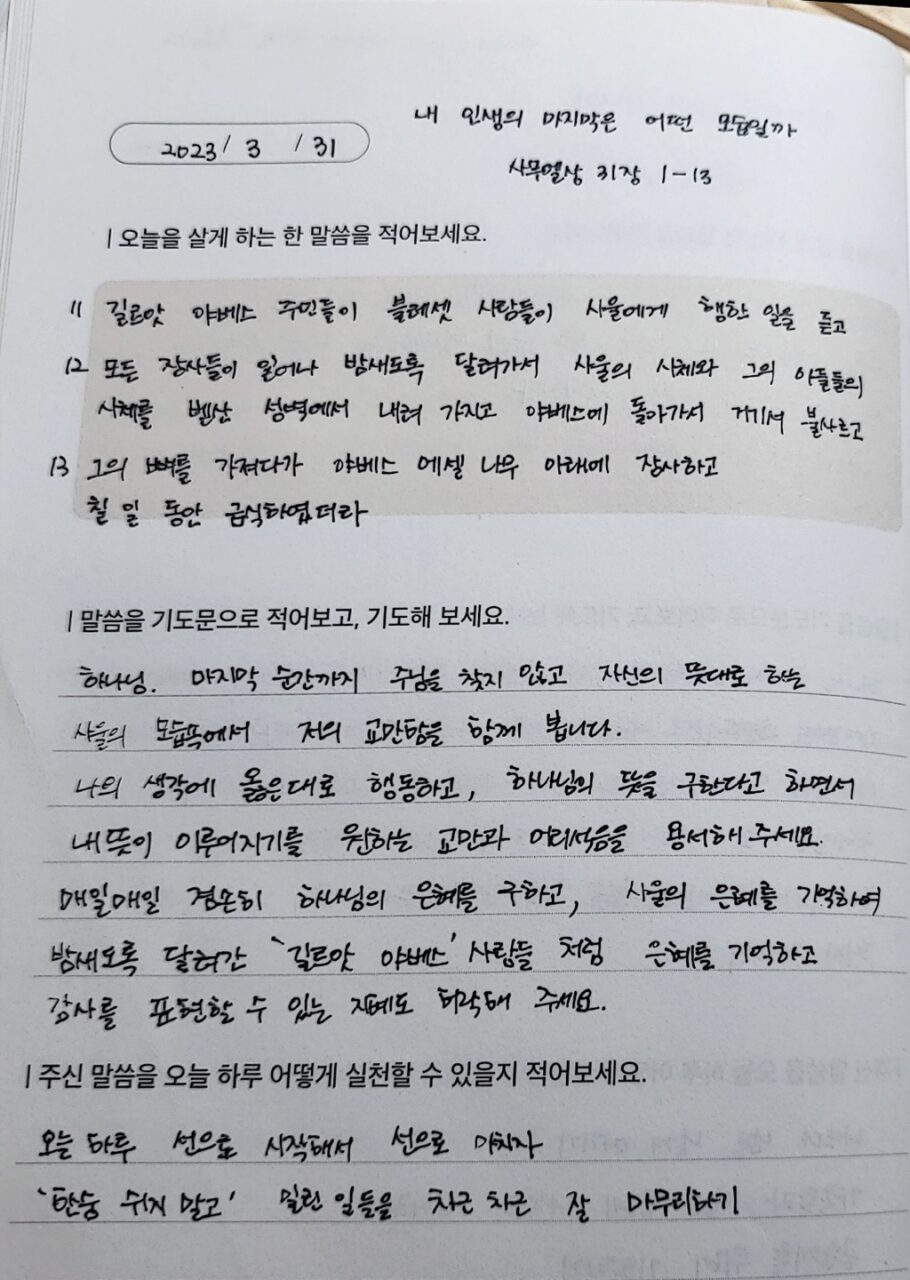 내 인생의 마지막은 어떤 모습일까
2023/ 3 / 31
사무엘상 31장 1-13
| 오늘을 살게 하는 한 말씀을 적어보세요.
11 길르앗 야베스 주민들이 블레셋 사람들이 사울에게 행한 일을 듣고
12 모든 장사들이 일어나 밤새도록 달려가서 사울의 시체와 그의 아들들의
시체를 벧산 성벽에서 내려 가지고 야베스에 돌아가서 거기서 불사르고
13 그의 뼈를 가져다가 야베스 에셀 나무 아래에 장사하고
칠 일 동안 금식하였더라
| 말씀을 기도문으로 적어보고, 기도해 보세요.
하나님. 마지막 순간까지 주님을 찾지 않고 자신의 뜻대로 하는
사울의 모습속에서 저의 교만함을 함께 봅니다.
나의 생각에 옳은대로 행동하고, 하나님의 뜻을 구한다고 하면서
내 뜻이 이루어지기를 원하는 교만과 어리석음을 용서해 주세요.
매일매일 겸손히 하나님의 은혜를 구하고, 사울의 은혜를 기억하여
밤새도록 달려간 '길르앗 야베스' 사람들 처럼 은혜를 기억하고
감사를 표현할 수 있는 지혜도 허락해 주세요.
| 주신 말씀을 오늘 하루 어떻게 실천할 수 있을지 적어보세요.
오늘 하루 선으로 시작해서 선으로 마치자
'한숨 쉬지 말고' 밀린 일들을 차근 차근 잘 마무리하기